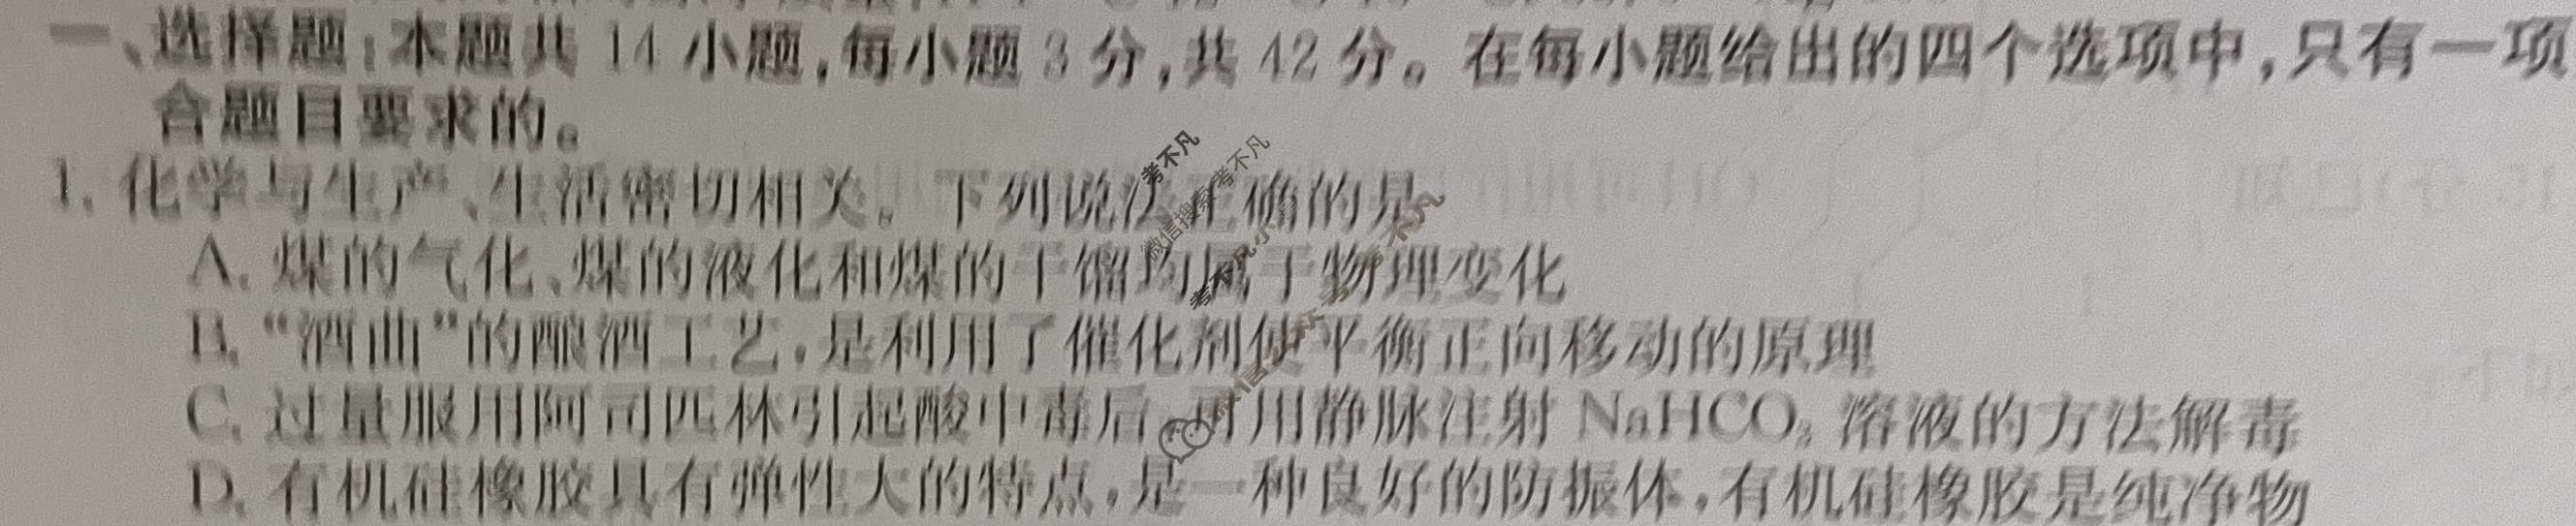 一、选择题:本题共 14 小题,每小题 3 分,共 42 分。在每小题给出的四个选项中,只有一项
合题目要求的。
1. 化学与生产、生活密切相关。下列说法正确的是
A. 煤的气化、煤的液化和煤的干馏均属于物理变化
B. “酒曲”的酿酒工艺,是利用了催化剂使平衡正向移动的原理
C. 过量服用阿司匹林引起酸中毒后,可用静脉注射 NaHCO₃ 溶液的方法解毒
D. 有机硅橡胶具有弹性大的特点,是一种良好的防振体,有机硅橡胶是纯净物
考不凡
微信搜索 考不凡